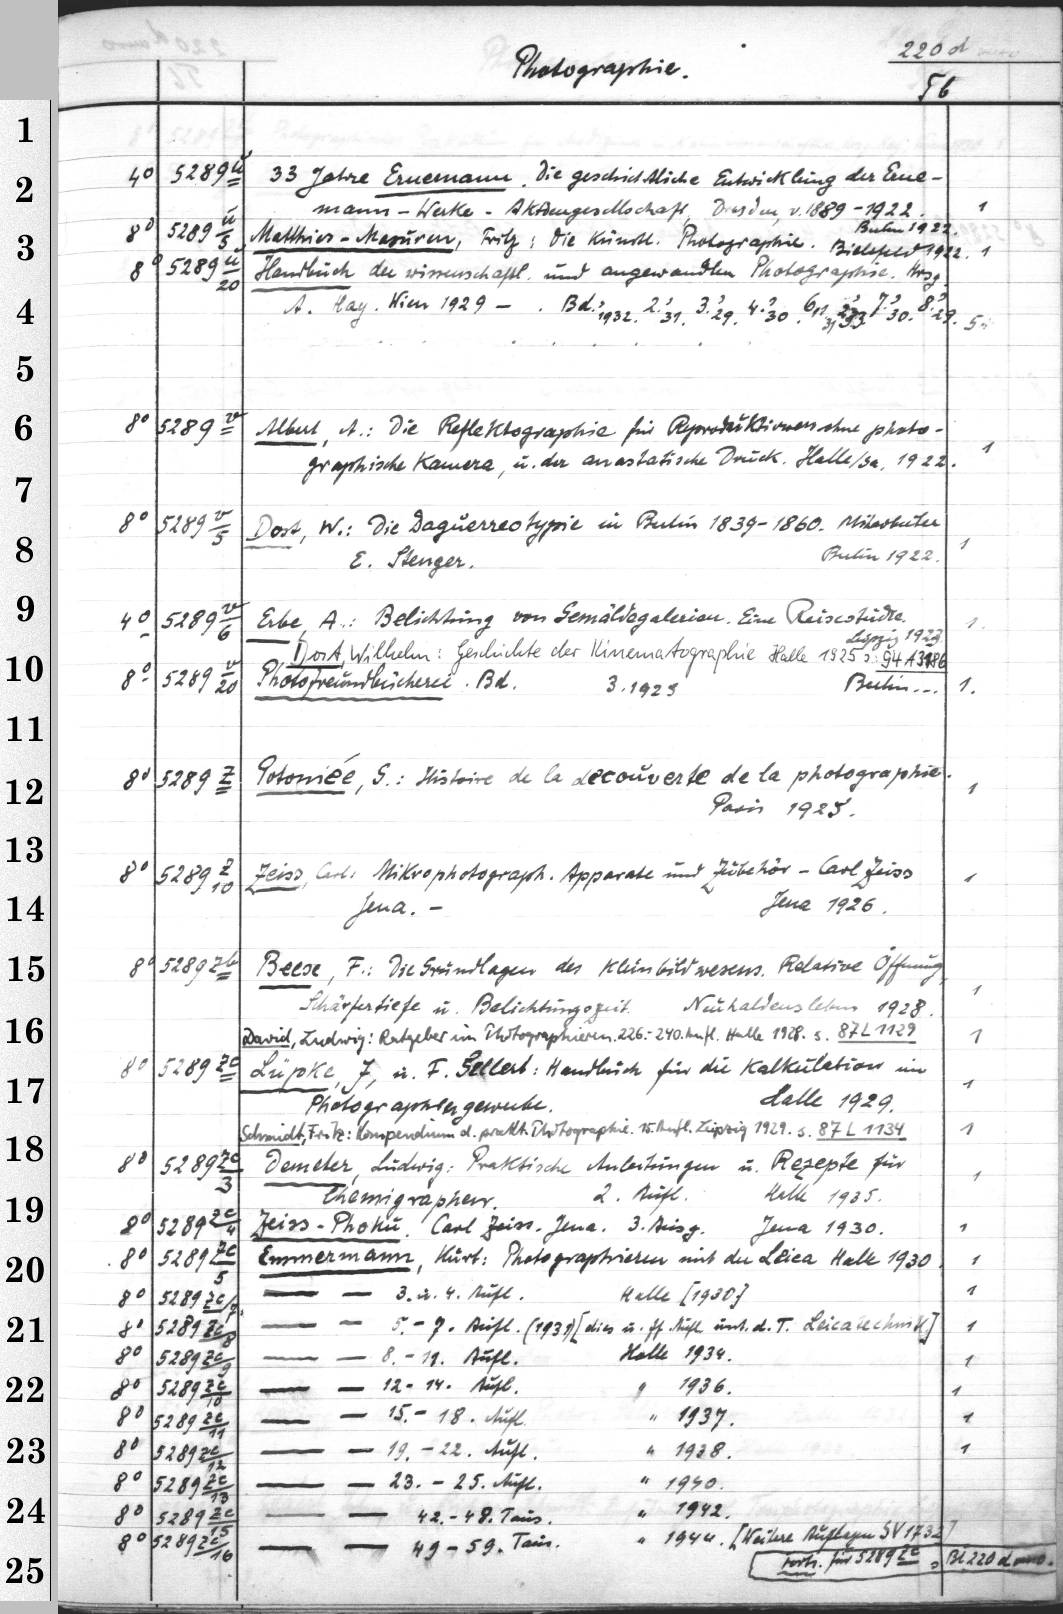 220 d
Photographie. Tb
1
2
3
4
5
6
7
8
9
10
11
12
13
14
15
16
17
18
19
20
21
22
23
24
25
4° 5289 u 33 Jahre Ernemann. Die geschichtliche Entwicklung der Erne-
mann-Werke-Aktiengesellschaft, Dresden, v. 1889-1922. 1
Berlin 1922.
8° 5289 u/5 Matthies-Masuren, Fritz: Die künstl. Photographie. Bielefeld 1922. 1
8° 5289 u/20 Handbuch der wissenschaftl. und angewandten Photographie. Hrsg.
A. Hay. Wien 1929 - . Bd. 1932. 2. 31. 3. 29. 4. 30. 7. 30. 8. 29. 5
8° 5289 v Albert, A.: Die Reflektographie für Reproduktionen ohne photo-
graphische Kamera, u. der anastatische Druck. Halle/Sa. 1922. 1
8° 5289 v/5 Dost, W.: Die Daguerreotypie in Berlin 1839-1860. Mitarbeiter
E. Stenger. Berlin 1922. 1
4° 5289 v/6 Erbe, A.: Belichtung von Gemäldegalerien. Eine Reisestudie.
Leipzig 1923 1.
Dost, Wilhelm: Geschichte der Kinematographie Halle 1925 s. 94 A 3186
8° 5289 v/20 Photofreundbücherei. Bd. 3. 1923 Berlin... 1.
8° 5289 z Potoniée, G.: Histoire de la découverte de la photographie.
Paris 1925. 1
8° 5289 z/10 Zeiss, Carl: Mikrophotograph. Apparate und Zubehör - Carl Zeiss
Jena. - Jena 1926. 1
8° 5289 zb Beese, F.: Die Grundlagen des Kleinbildwesens. Relative Öffnung,
Schärfentiefe u. Belichtungszeit. Neuhaldensleben 1928. 1
David, Ludwig: Ratgeber im Photographieren. 226.-240. Aufl. Halle 1928. s. 87 L 1129 1
8° 5289 zc Lüpke, J, u. F. Sellert: Handbuch für die Kalkulation im
Photographengewerbe. Halle 1929. 1
Schmidt, Fritz: Kompendium d. prakt. Photographie. 15. Aufl. Leipzig 1929. s. 87 L 1134 1
8° 5289 zc/3 Demeter, Ludwig: Praktische Anleitungen u. Rezepte für
Chemigraphen. 2. Aufl. Halle 1935. 1
8° 5289 zc/4 Zeiss-Phoku. Carl Zeiss. Jena. 3. Ausg. Jena 1930. 1
8° 5289 zc/5 Emmermann, Kurt: Photographieren mit der Leica Halle 1930. 1
8° 5289 zc/7 — — 3. u. 4. Aufl. Halle [1930] 1
8° 5289 zc/8 — — 5.-7. Aufl. (1931) [dies u. ff Aufl. unt. d. T. Leicatechnik] 1
8° 5289 zc/9 — — 8.-11. Aufl. Halle 1934. 1
8° 5289 zc/10 — — 12-14. Aufl. " 1936. 1
8° 5289 zc/11 — — 15.-18. Aufl. " 1937. 1
8° 5289 zc/12 — — 19.-22. Aufl. " 1938. 1
8° 5289 zc/13 — — 23.-25. Aufl. " 1940.
8° 5289 zc/15 — — 42.-48. Taus. " 1942.
8° 5289 zc/16 — — 49-59. Taus. " 1944. [Weitere Auflagen SV 1732]
Forts. für 5289 zc s. Bl. 220 d